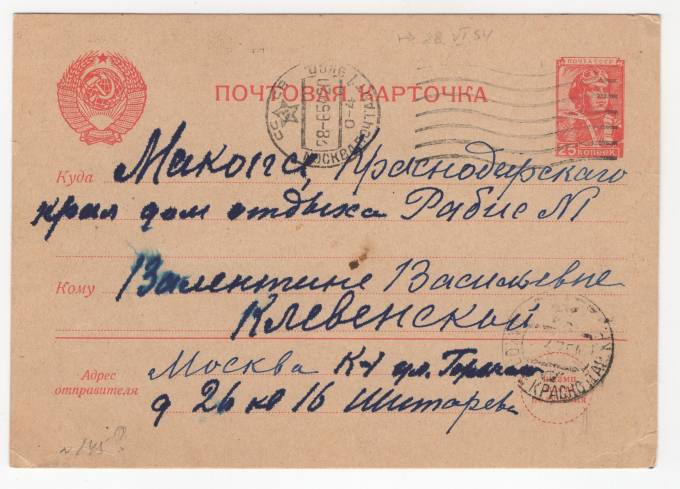 28 VI 54
ПОЧТА СССР
ПОЧТОВАЯ КАРТОЧКА
СССР
МОСКВА ПОЧТАМТ
25 КОПЕЕК
Куда Макопсе, Краснодарского
края дом отдыха Рабис №1
Кому Валентине Васильевне
Клевенской
КРАСНОДАР
Адрес отправителя
Москва К-1 ул. Горького
д 26 кв 16 Шитарева